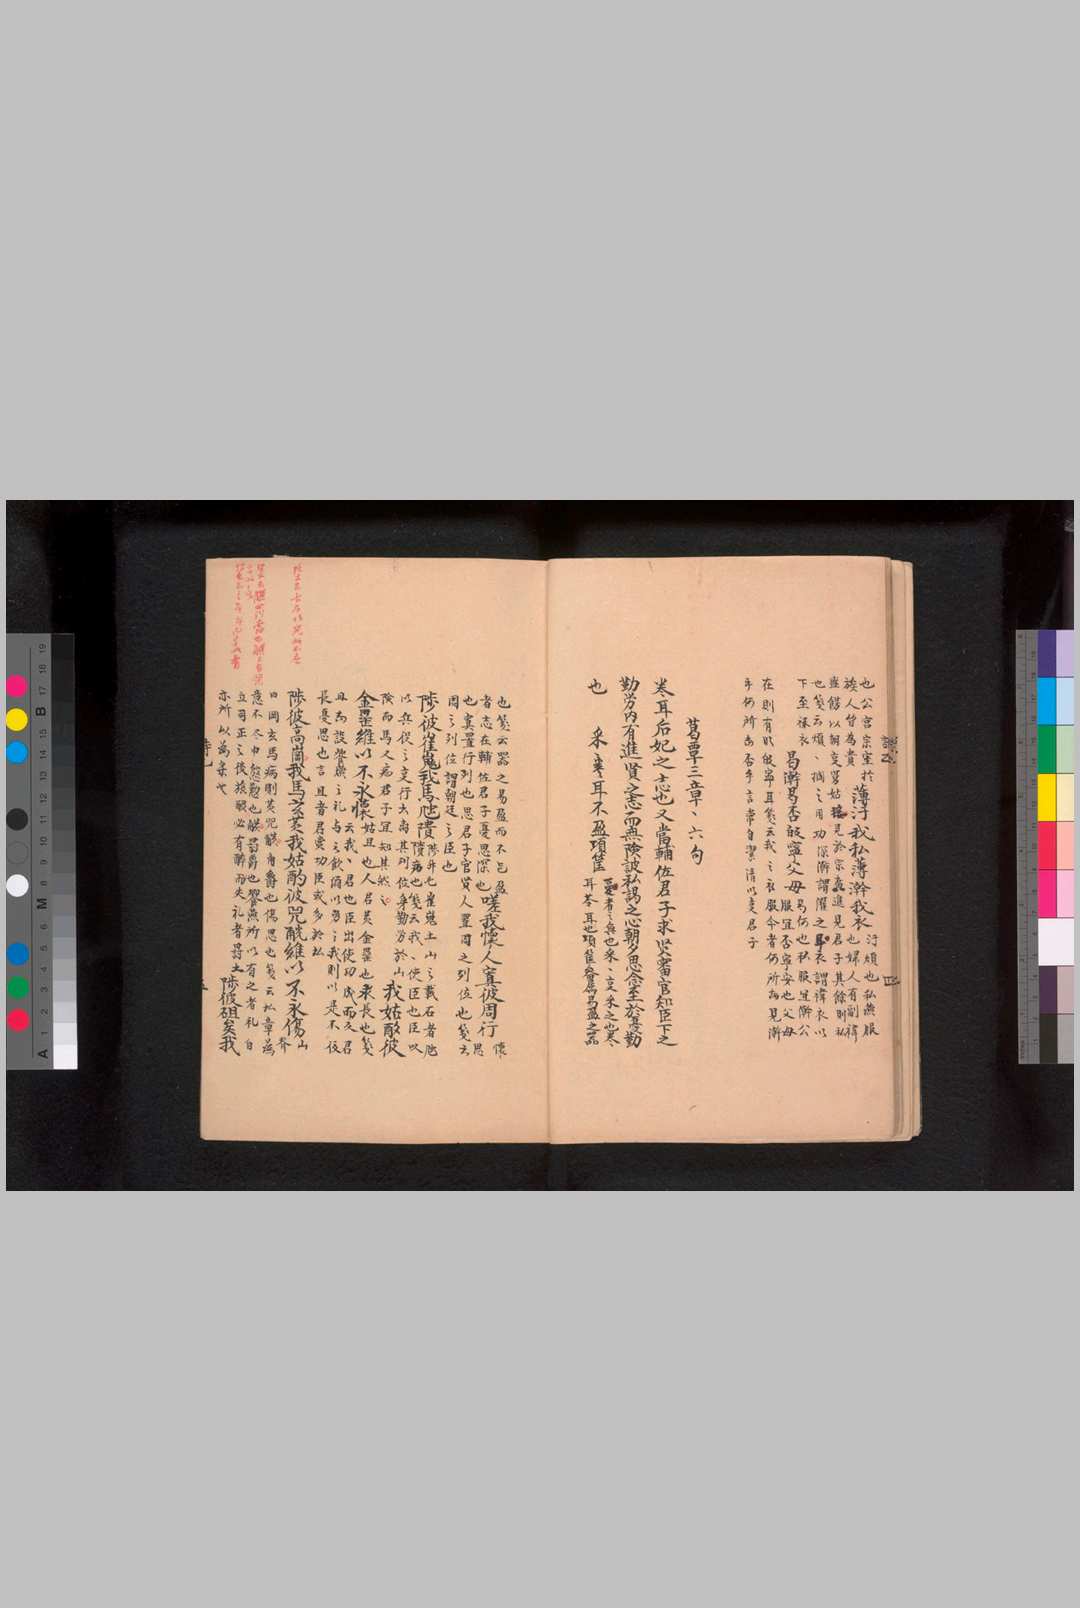 也公宮宗室於
族人皆為貴
薄汙我私薄澣我衣
汙煩也私燕服
也婦人有副褘
盛餝以朝事舅姑接見於宗廟進見君子其餘則私
也箋云煩、撋之用功深澣謂濯之耳衣謂褘衣以
下至褖衣
曷澣曷否歸寧父母
曷何也私服宜澣公
服宜否寧安也父母
在則有時歸寧耳箋云我之衣服今者何所當見澣
乎何所當否乎言常自潔清以事君子
葛覃三章、六句
卷耳后妃之志也又當輔佐君子求賢審官知臣下之
勤勞内有進賢之志而無險詖私謁之心朝夕思念至於憂勤
也
采、卷耳不盈頃筐
憂者之興也采、事采之也卷
耳苓耳也頃筐畚属易盈之器
也箋云器之易盈而不已盈
者志在輔佐君子憂思深也
嗟我懷人寘彼周行
懷
思
也寘置行列也思君子官賢人置周之列位也箋云
周之列位謂朝廷之臣也
陟彼崔嵬我馬虺隤
陟升也崔嵬土山之戴石者虺
隤病也箋云我、使臣也臣以
以兵役之事行出离其列位身勤勞於山
險而馬人病君子宜知其然
我姑酌彼
金罍維以不永懷
姑且也人君黃金罍也永長也箋
云我、君也臣出使功成而反君
且為設饗燕之礼与之飲酒以勞之我則以是不復
長憂思也言且者君賞功臣或多於此
陟彼高崗我馬玄黃我姑酌彼兕觥維以不永傷
山
脊
曰岡玄馬病則黃兕觥角爵也傷思也箋云此章為
意不尽申慇懃也觥罰爵也饗燕所以有之者礼自
立司正之後旅酬必有醉而失礼者罰之
亦所以為樂也
陟彼砠矣我